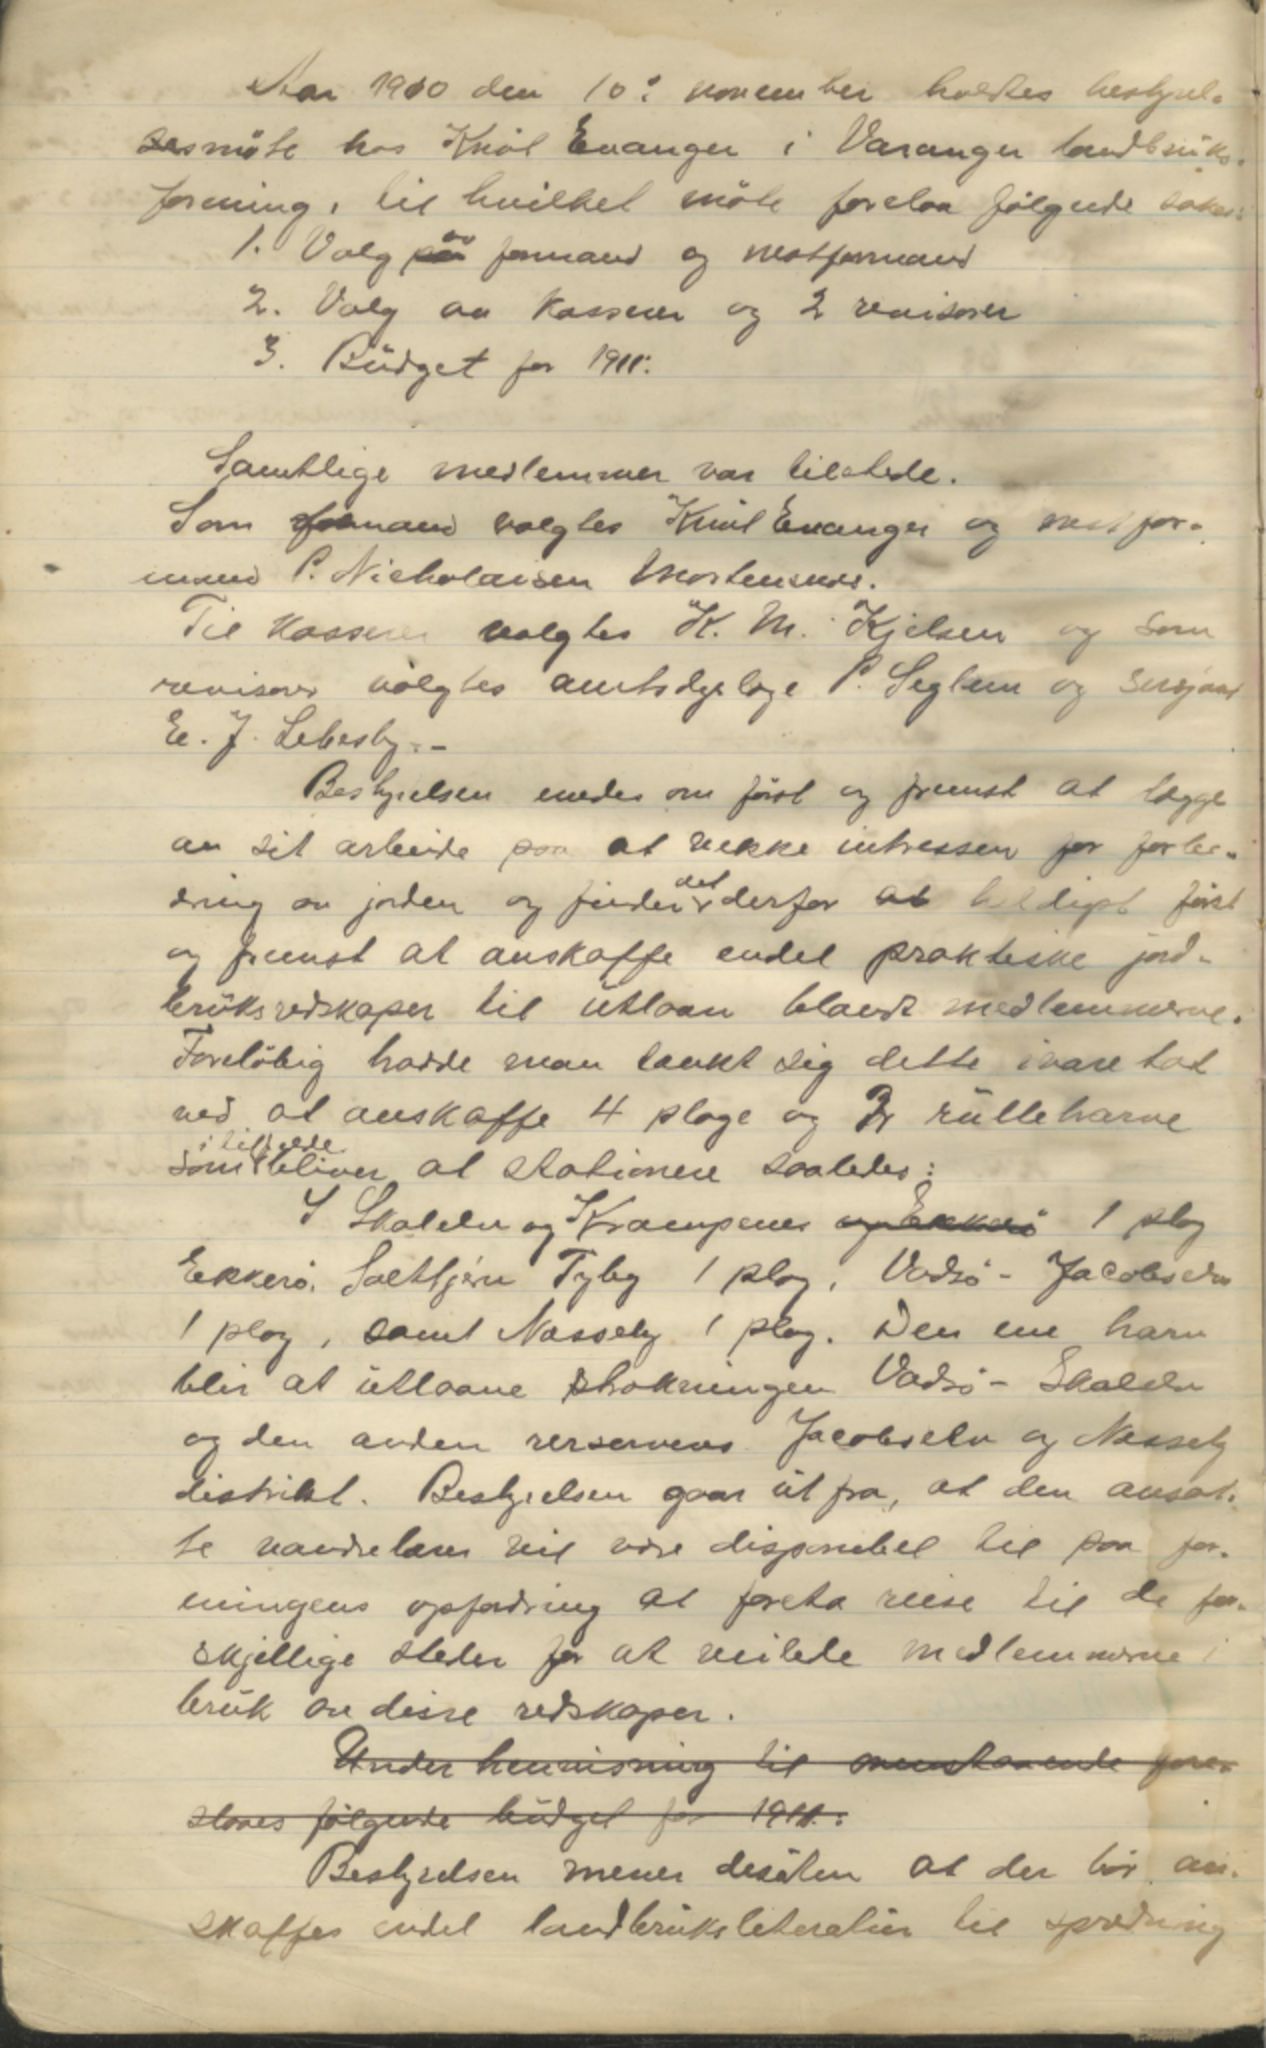 Aar 1910 den 10: november holdtes bestyrel-
sesmöte hos Knut Evanger i Varanger landbruks-
forening, til hvilket möte forelaa følgende saker:
1. Valg av formand og nestformand
2. Valg av Kasserer og 2 revisorer
3. Büdget for 1911:
Samtlige medlemmer var tilstede.
Som formand valgtes Knut Evanger og nestfor-
mand P. Nicholaisen Mortensnes.
Til Kasserer valgtes K. M. Kjelsen og som
revisorer valgtes amtsdyrlæge P. Seglem og
E. J. Lebesby.-
Bestyrelsen enedes om først og fremst at lægge
an sit arbeide paa at vekke intressen for forbe-
dring av jorden og finder det derfor heldigst først
og fremst at anskaffe endel praktiske jord-
brüksredskaper til ütlaan blandt medlemmerne.
Foreløbig hadde man tænkt sig dette ivaretat
ved at anskaffe 4 ploge og 2 rülleharve
som i tilfelde bliver at stationere saaledes:
I Skalelv og Krampenes og Ekkerö 1 plog
Ekkerö, Saltbjern Tyby 1 plog, Vadsö - Jacobselv
1 plog, samt Nesseby 1 plog. Den ene harv
blir at ütlaane strækningen Vadsö - Skalelv
og den anden reserveres Jacobselv og Nesseby
distrikt. Bestyrelsen gaar üt fra, at den ansat-
te vandrelærer vil være disponibel til paa for-
eningens opfordring at foreta reise til de for-
skjellige steder for at veilede medlemmerne i
brük av disse redskaper.
Under henvisning til ovenstaaende fore-
slaaes følgende büdget for 1911:
Bestyrelsen mener desüten at der bör an-
skaffes endel landbrüksliteratür til spredning